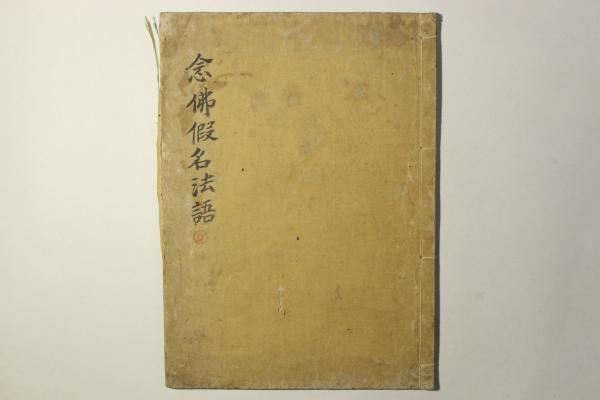 念佛假名法語